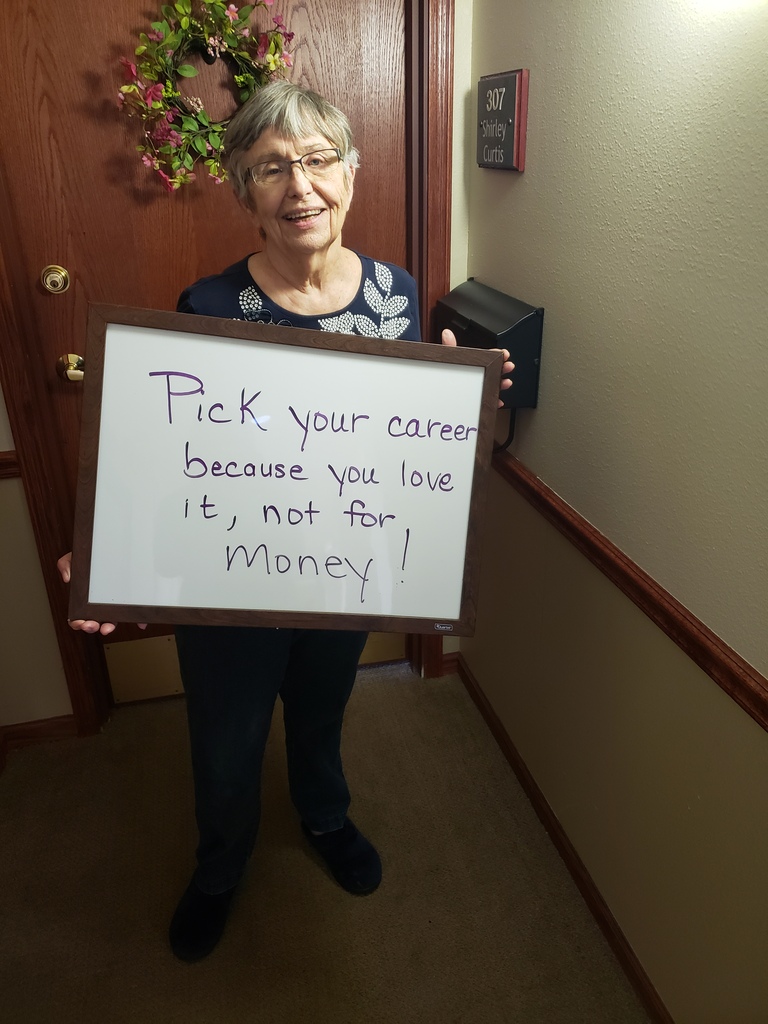 307
Shirley
Curtis
Pick your career
because you love
it, not for
money!